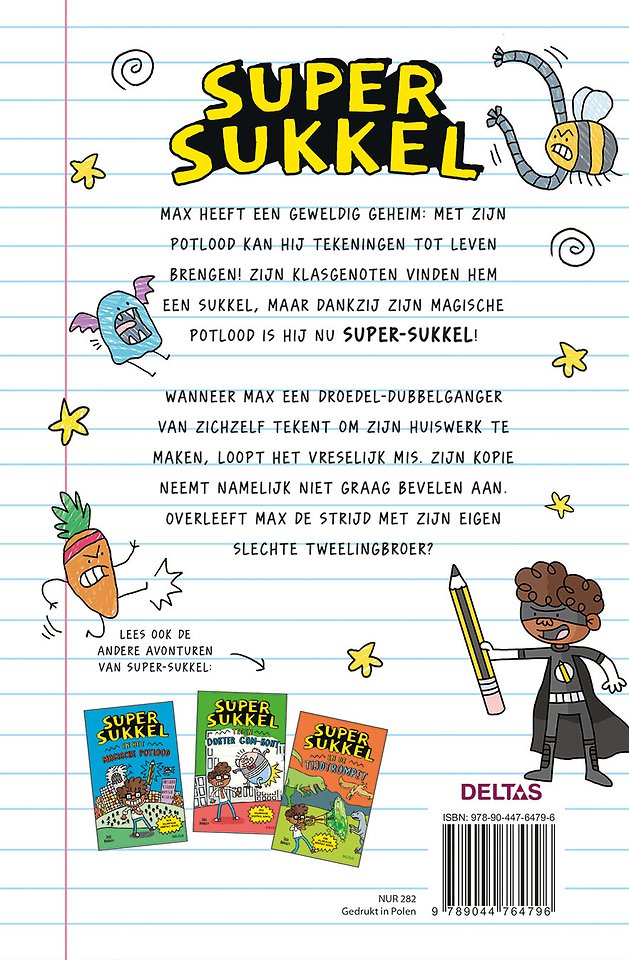 SUPER
SUKKEL
MAX HEEFT EEN GEWELDIG GEHEIM: MET ZIJN
POTLOOD KAN HIJ TEKENINGEN TOT LEVEN
BRENGEN! ZIJN KLASGENOTEN VINDEN HEM
EEN SUKKEL, MAAR DANKZIJ ZIJN MAGISCHE
POTLOOD IS HIJ NU SUPER-SUKKEL!
WANNEER MAX EEN DROEDEL-DUBBELGANGER
VAN ZICHZELF TEKENT OM ZIJN HUISWERK TE
MAKEN, LOOPT HET VRESELIJK MIS. ZIJN KOPIE
NEEMT NAMELIJK NIET GRAAG BEVELEN AAN.
OVERLEEFT MAX DE STRIJD MET ZIJN EIGEN
SLECHTE TWEELINGBROER?
LEES OOK DE
ANDERE AVONTUREN
VAN SUPER-SUKKEL:
SUPER
SUKKEL
EN HET
MAGISCHE POTLOOD
SUPER
SUKKEL
DOKTER GUM-KONT
SUPER
SUKKEL
EN DE
TIJDTROMPET
DELTAS
ISBN: 978-90-447-6479-6
9 789044 764796
NUR 282
Gedrukt in Polen